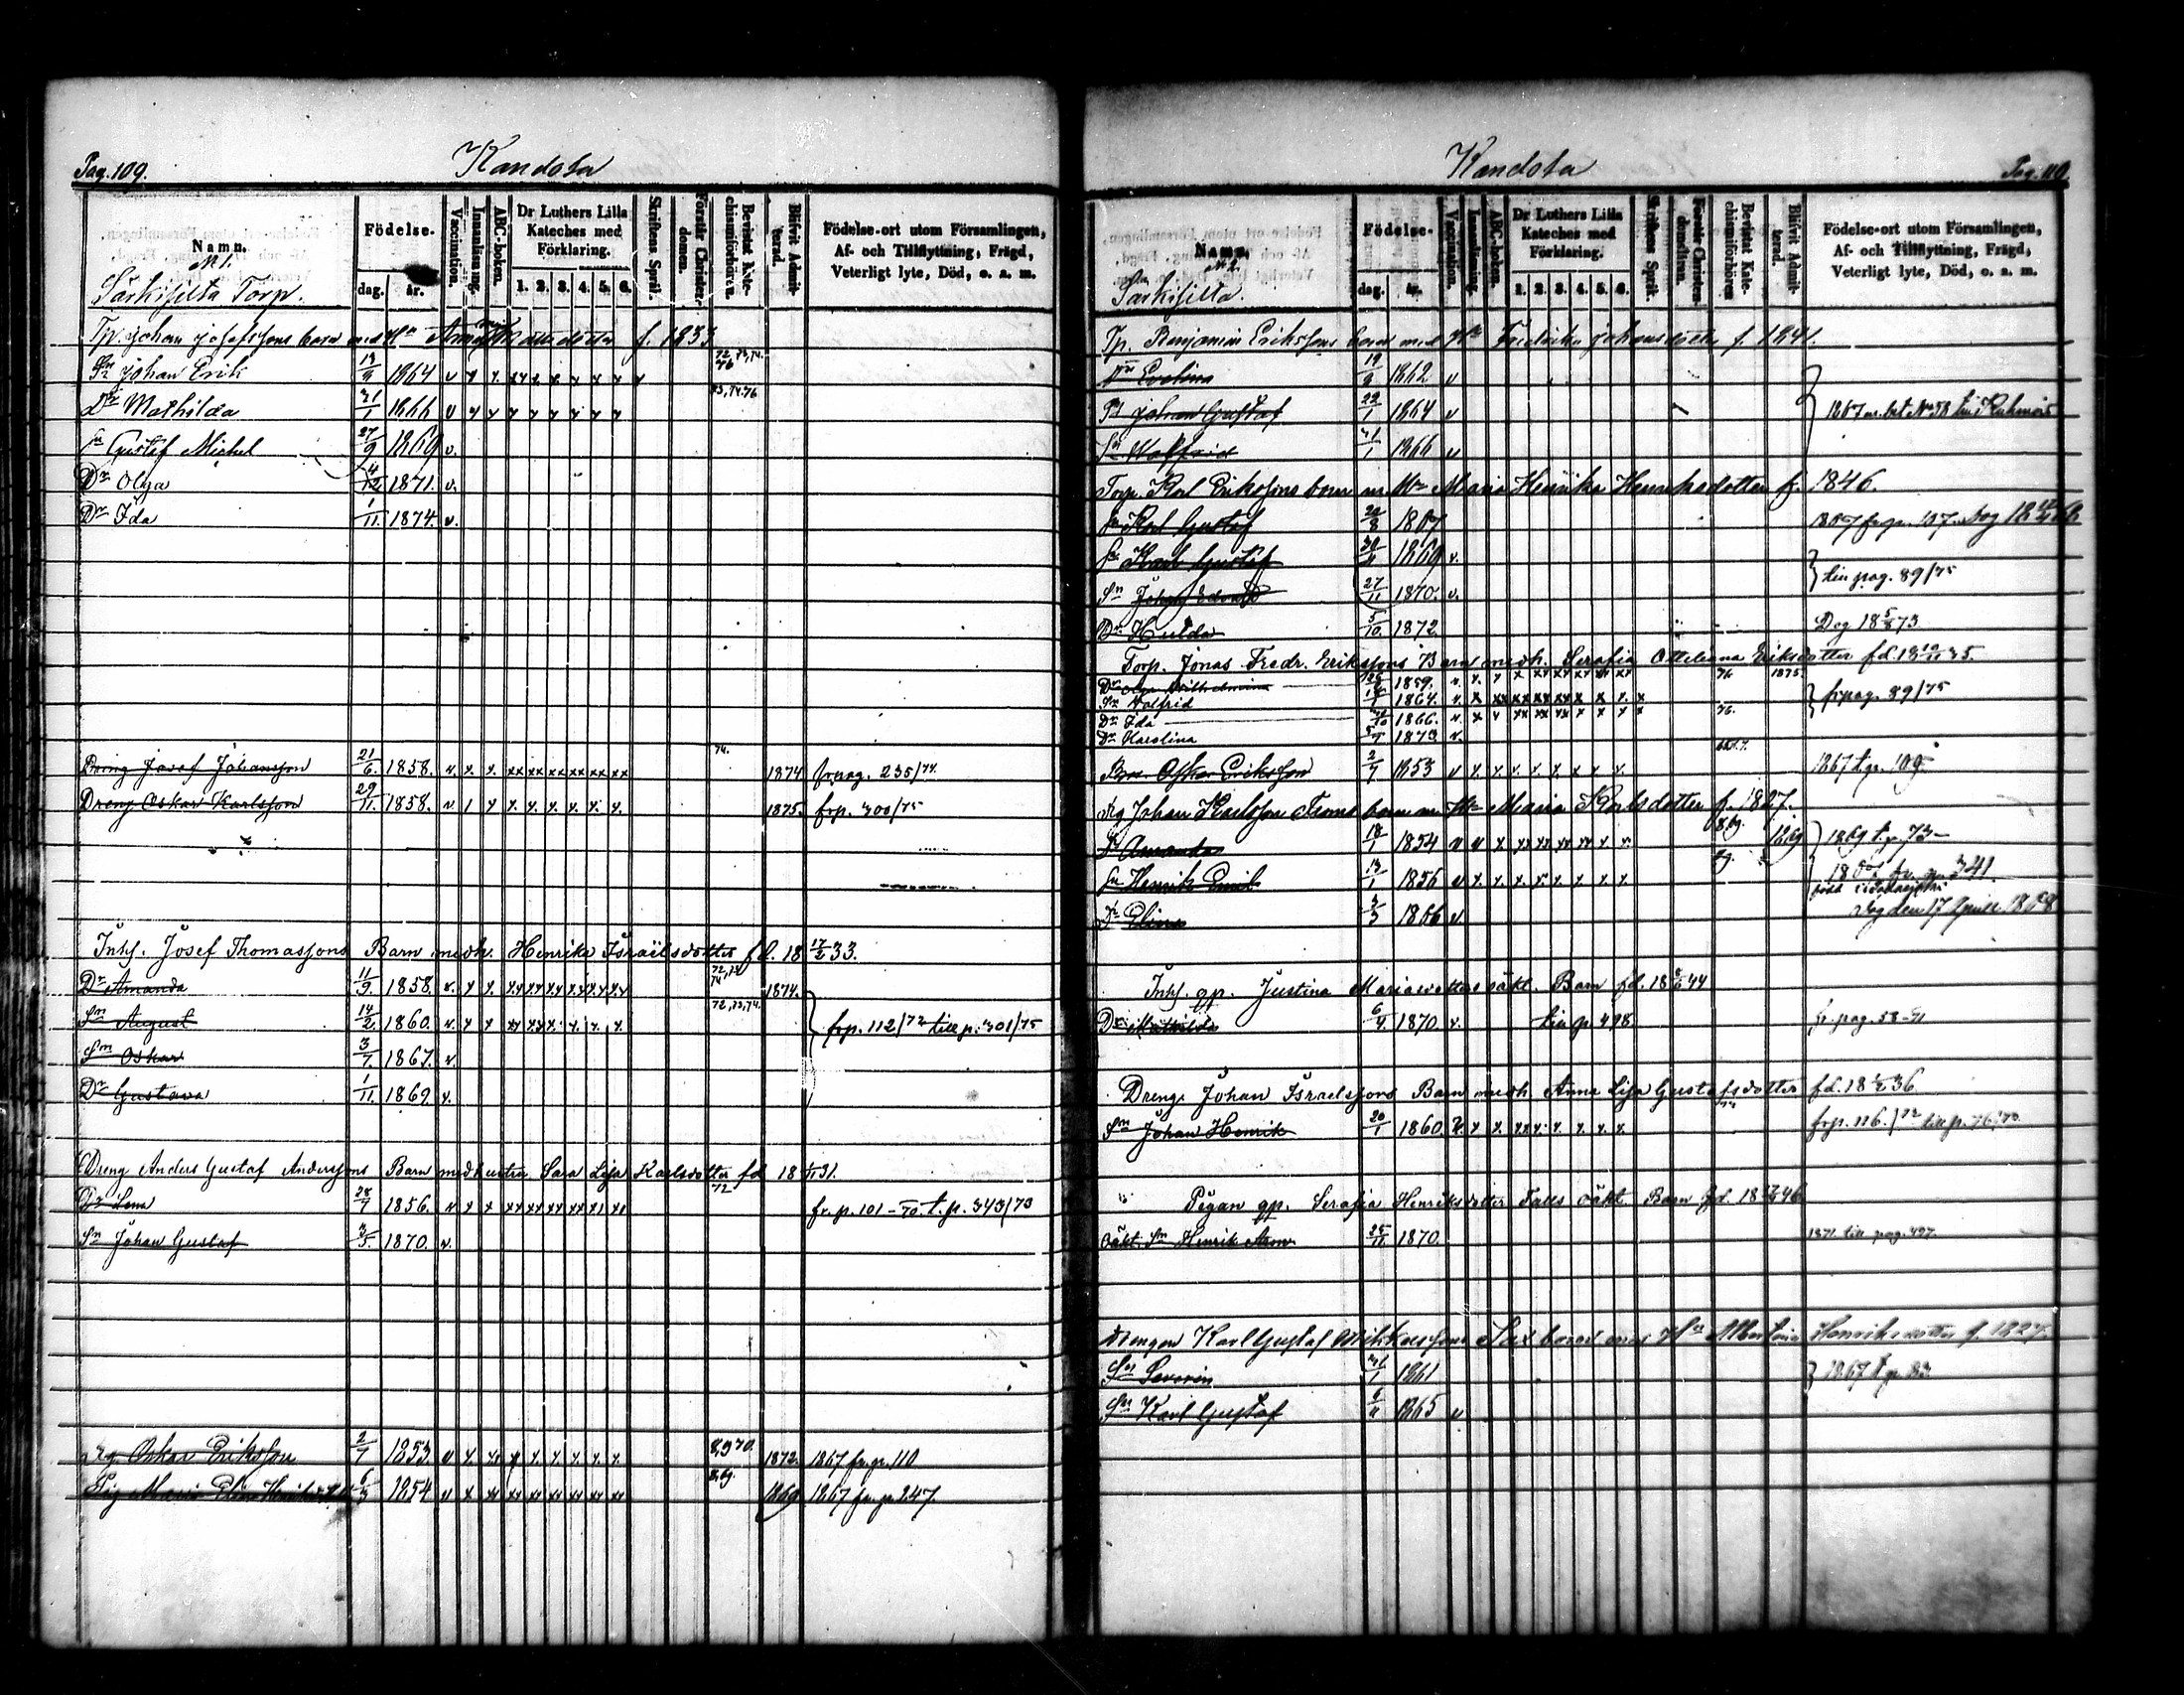 Pag. 109.
Kandola
Namn.
Födelse.
dag.
år.
Vaccination.
Innanläsning.
ABC-boken.
Dr Luthers Lilla Kateches med Förklaring.
1. 2. 3. 4. 5. 6.
Skriftens Språk.
Förstår Christendomen.
Bevistat Katechismiförhören.
Blifvit Admitterad.
Födelse-ort utom Församlingen, Af- och Tillflyttning, Frägd, Veterligt lyte, Död, o. a. m.
N 1.
Särkisilta Torp.
Tp. Johan Josefssons barn med Hn f. 1833
Sn Johan Erik 13/9 1864 v
Dr Mathilda 31/1 1866 v
Sn Gustaf Michel 27/9 1869 v.
Dr Olga 4/12 1871. v.
Dr Ida 1/11. 1874. v.
Dreng Josef Johansson 21/6. 1858. v. 74. 1874 fr pag. 235/74.
Dreng Oskar Karlsson 29/11. 1858. v 1875. frp. 300/75
Inhs. Josef Thomassons Barn medh. Henrika Israëlsdotter fd. 18 17/2 33.
Dr Amanda 11/9. 1858. v. 1874.
Sn August 14/2. 1860. v. 72,73,74. frp. 112/72 till p. 301/75
Sn Oskar 3/7. 1867. v.
Dr Gustava 1/11. 1869 v.
Dreng Anders Gustaf Anderssons Barn med hustru Sara Lisa Karlsdotter fd 18 31.
Dr Lena 28/7 1856. v 72 fr. p. 101 - 70. t. p. 343/73
Sn Johan Gustaf 3/5. 1870. v.
Dreg Oskar Eriksson 2/7 1853 v 1872. 1867 fr. p. 110
Pig. Maria 6/3 1854 v 1869 1867 fr. p. 247.
Kandola
Pag. 110.
Namn.
Födelse.
dag.
år.
Vaccination.
Innanläsning.
ABC-boken.
Dr Luthers Lilla Kateches med Förklaring.
1. 2. 3. 4. 5. 6.
Skriftens Språk.
Förstår Christendomen.
Bevistat Katechismiförhören
Blifvit Admitterad.
Födelse-ort utom Församlingen, Af- och Tillflyttning, Frägd, Veterligt lyte, Död, o. a. m.
N 2.
Särkisilta.
Tp. Benjamin Erikssons barn med Hn Fredrika Johansdotter f. 1841.
Dr Evelina 19/9 1862 v
Sn Johan Gustaf 22/1 1864 v 1867 m. bet. No 58 till Kuhmois
Sn Walfrid 31/1 1866 v
Torp. Karl Erikssons barn m. Hn Maria Henrika Henriksdotter f. 1846.
Sn Karl Gustaf 20/8 1867 1867 fr. p. 107.
Sn Karl Gustaf 1869 v.
Sn Johan Edvard 27/11 1870. v. till pag. 89/75
Dr Hulda 5/10. 1872 Dog 18 5/8 73
Torp. Jonas Fredr. Erikssons Barn medh. Serafia Otteliana Eriksdotter fd. 18 19/11 35.
Dr Olga Wilhelmina 1859. v. 76 1875.
Sn Walfrid 1864. v. frpag. 89/75
Dr Ida 1866. v. 76.
Dr Karolina 1873 v.
Oskar Eriksson 2/7 1853 v 1867 t. p. 109.
Drg Johan Karlsson Froms barn m. Hn Maria Karlsdotter f. 1827.
Dr Amanda 18/1 1854 v 1869 1869 t. p. 73
Sn Henrik Emil 13/1 1856 v fr. p. 341.
Dr Elina 3/3 1866 v Dog den 17 April 1868
Inhs. qp. Justina Mariasdotters oäkt. Barn fd. 18 44
Dr Mathilda 6/4. 1870 v. till p. 498 fr. pag. 58-71
Dreng. Johan Israelssons Barn medh Anna Lisa Gustafsdotter fd. 18 36
Sn Johan Henrik 20/1 1860. v. 72 frp. 116./72 till p. 76/73.
Pigan qp. Serafia Henriksdotter Falls oäkt. Barn fd. 18 46
Oäkt. Sn Henrik 25/11 1870. 1871 till pag. 497.
Drengen Karl Gustaf barn med Hn Albertina Henriksdotter f. 1827.
Sn Severin 31/1 1861 1867 t. p. 83
Sn Karl Gustaf 1865 v